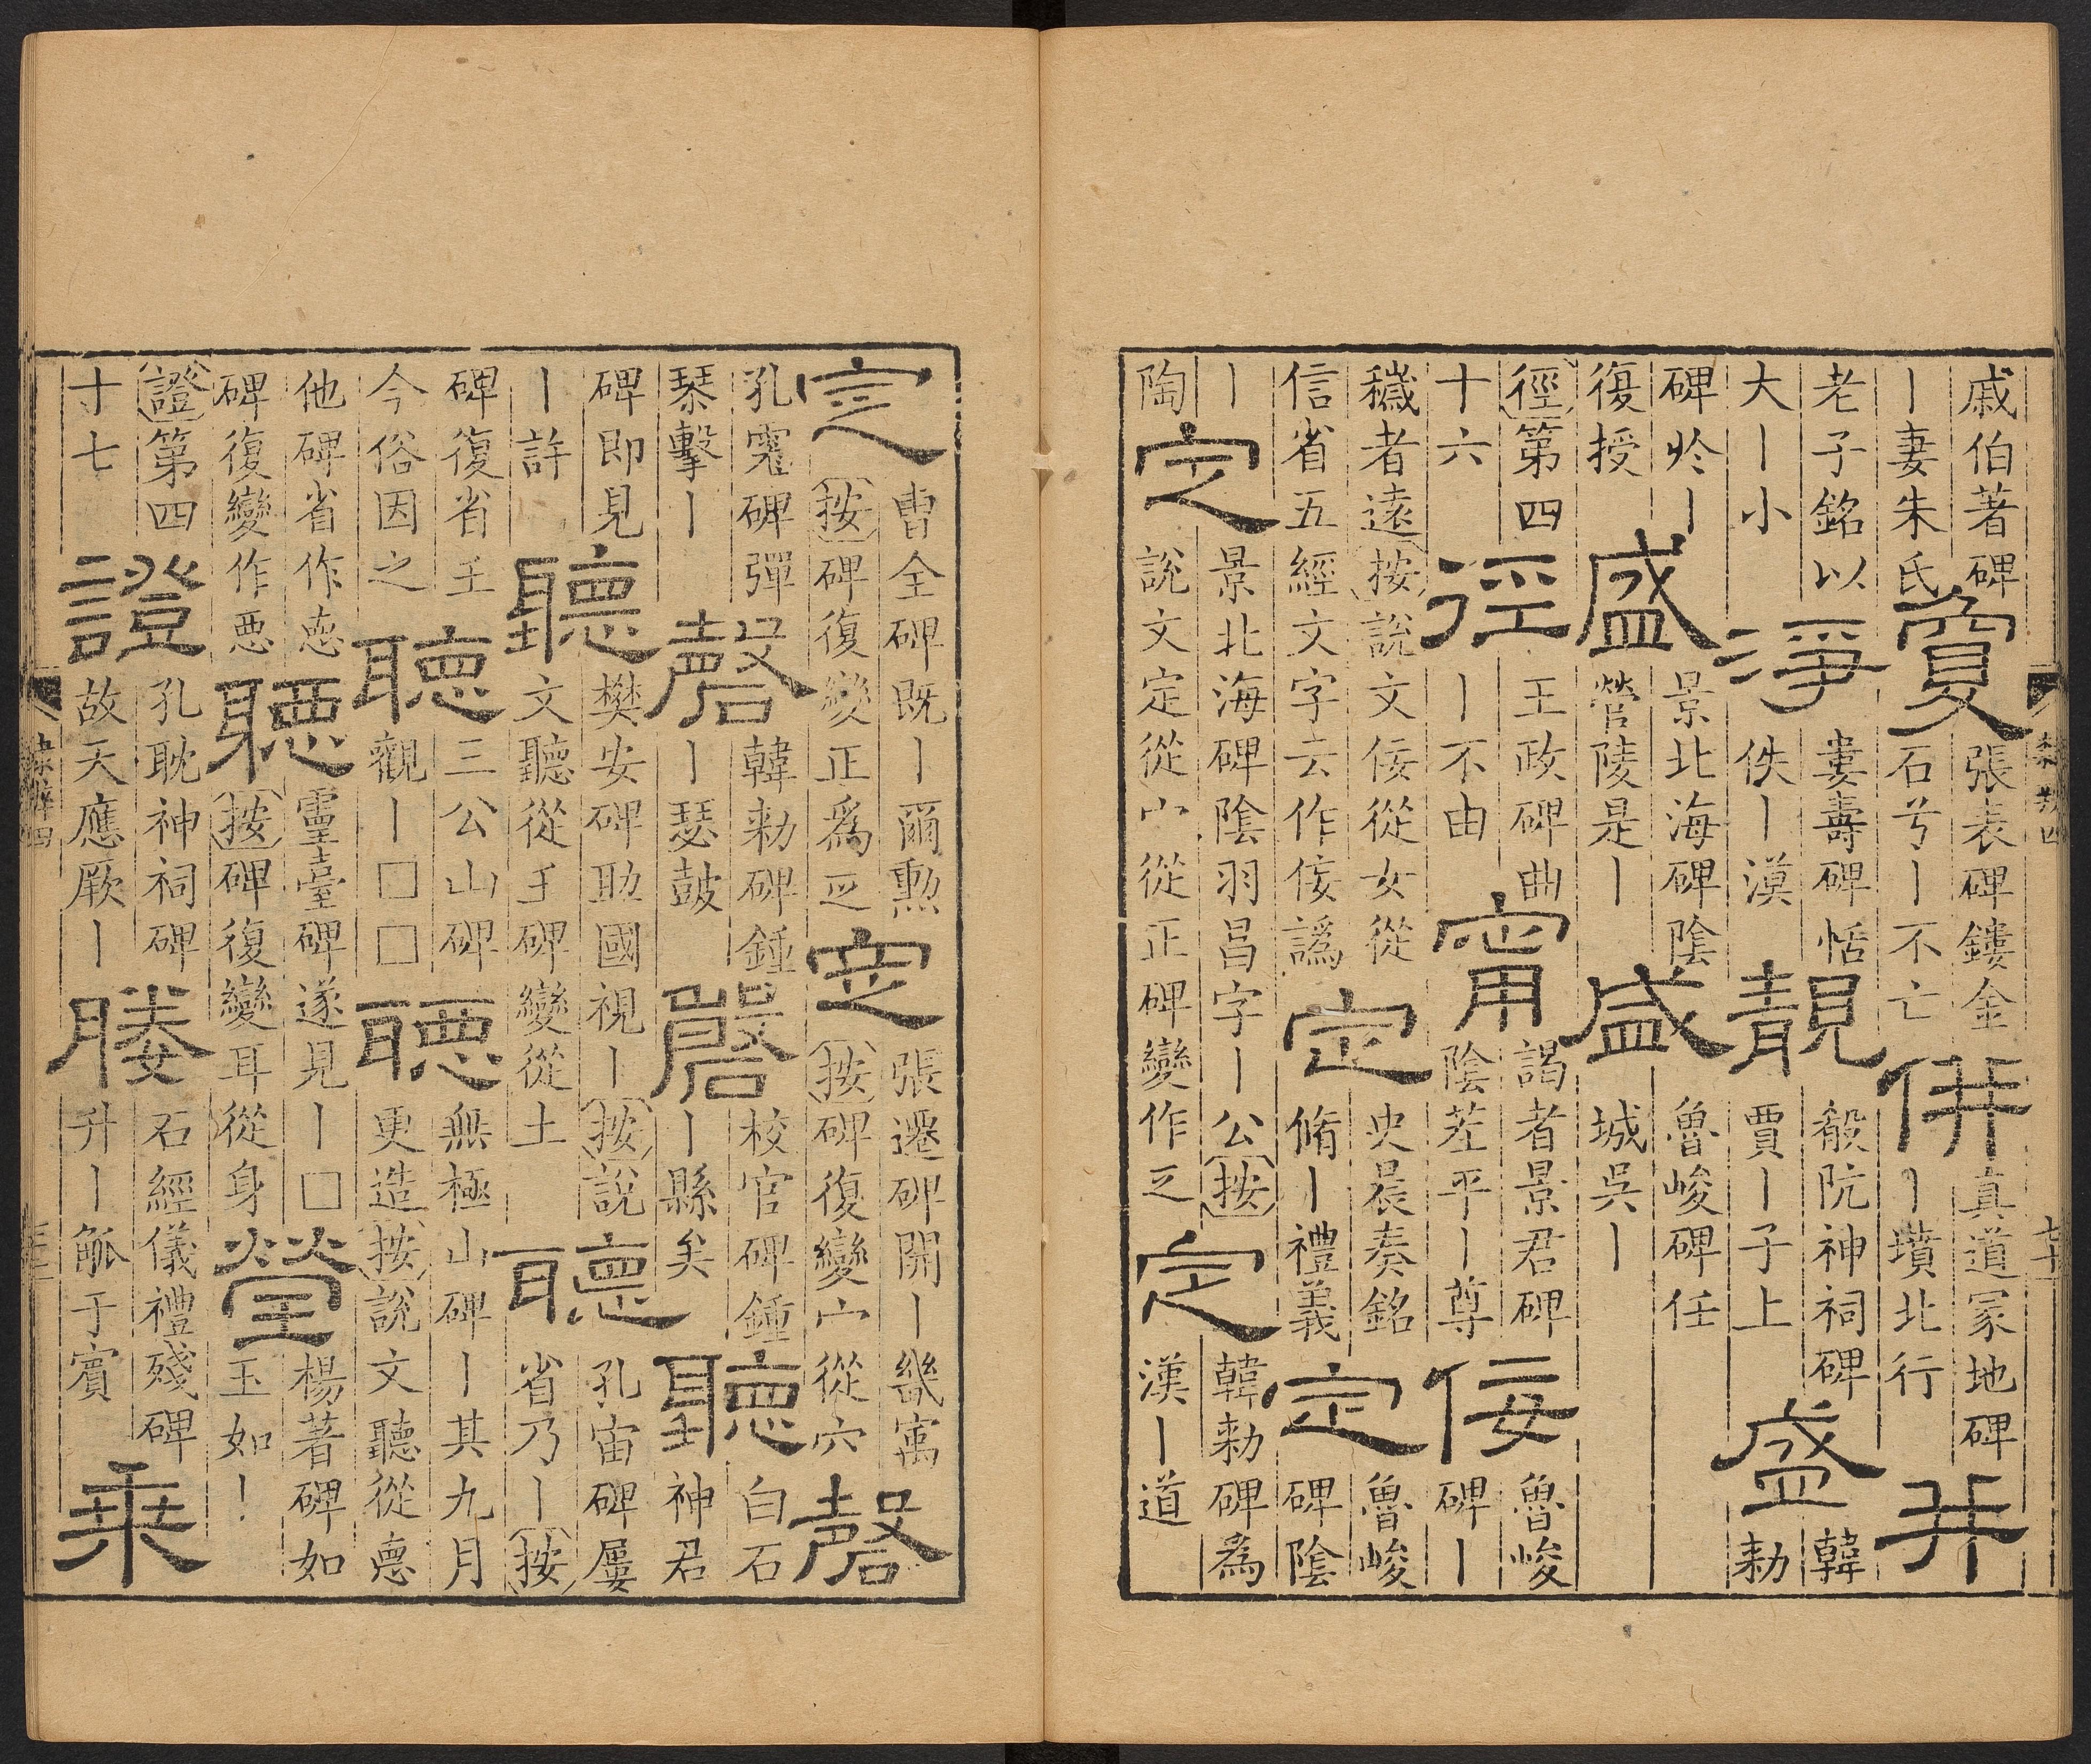 戚伯著碑丨妻朱氏敻張表碑鏤金石兮丨不亡併真道冢地碑丨墳北行并
老子銘以大丨小淨婁壽碑恬佚丨漠靚殽阬神祠碑賈丨子上盛韓勑
碑於丨復授盛景北海碑陰營陵是丨盛魯峻碑任城吳丨
徑第四十六徑王政碑曲丨不由甯謁者景君碑陰茬平丨尊佞魯峻碑丨
穢者遠按說文佞從女從信省五經文字云作佞譌定史晨奏銘脩丨禮義定魯峻碑陰
丨陶定景北海碑陰羽昌字丨公按說文定從宀從正碑變作㝎定韓勑碑爲漢丨道
定曹全碑既丨爾勲按碑復變正爲𤴓定張遷碑開丨畿㝢按碑復變宀從穴磬
孔宽碑彈琴擊丨磬韓勑碑鍾丨瑟鼓磬校官碑鍾丨縣矣聽白石神君
碑即見丨許聽樊安碑助國視丨按說文聽從𡈼碑變從土聽孔宙碑屢省乃丨按
碑復省𡈼今俗因之聽三公山碑觀丨□□聽無極山碑丨其九月更造按說文聽從悳
他碑省作㥁碑復變作悪聽靈臺碑遂見丨□按碑復變耳從身瑩楊著碑如玉如丨
證第四寸七證孔耽神祠碑故天應厥丨媵石經儀禮殘碑升丨觚于賓乘